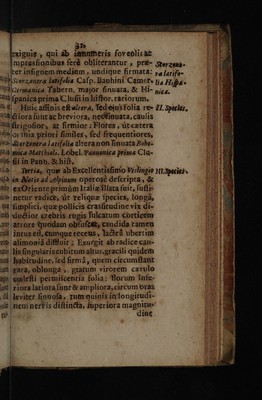 32
exiguis, qui ab innumeris foveolis ac
impressionibus ferè obliterantur, præ-
ter insignem medium, undique firmata:
Scorzonera latifolia Casp. Bauhini Camer.
Germanica Tabern. major sinuata, & Hi-
spanica prima Clusii in histor. rariorum.
Scorzone-
ra latifo-
lia Hispa-
nica.
Huic affinis est altera, sed ejus folia re-
ctiora sunt ac breviora, nec sinuata, caulis
strigosior, ac firmior: Flores, ut cætera
omnia priori similes, sed frequentiores,
Scorzonera latifolia altera non sinuata Bohe-
mica Matthiolo. Lobel. Pannonica prima Clu-
sii in Pann. & hist.
II. Species.
Tertia, quæ ab Excellentissimo Veslingio
in Notis ad Alpinum operosè descripta, &
ex Oriente primùm Italiæ illata fuit, susti-
netur radice, ut reliquæ species, longâ,
simplici, quæ pollicis crassitudine vix di-
ductior crebris rugis sulcatum corticem
atrore quodam obfuscat, candida tamen
intus est, eumque recens, lacteâ ubertim
alimoniâ diffluit: Exurgit ab radice cau-
lis singularis cubitum altus, gracili quidem
habitudine, sed firmâ, quem circumstant
rara, oblonga, gratum virorem cærulo
cælesti permiscentia folia: horum infe-
riora latiora sunt & ampliora, circum oras
leviter sinuosa, tum quinis in longitudi-
nem nervis distincta, superiora magnitu-
dine
III. Species.